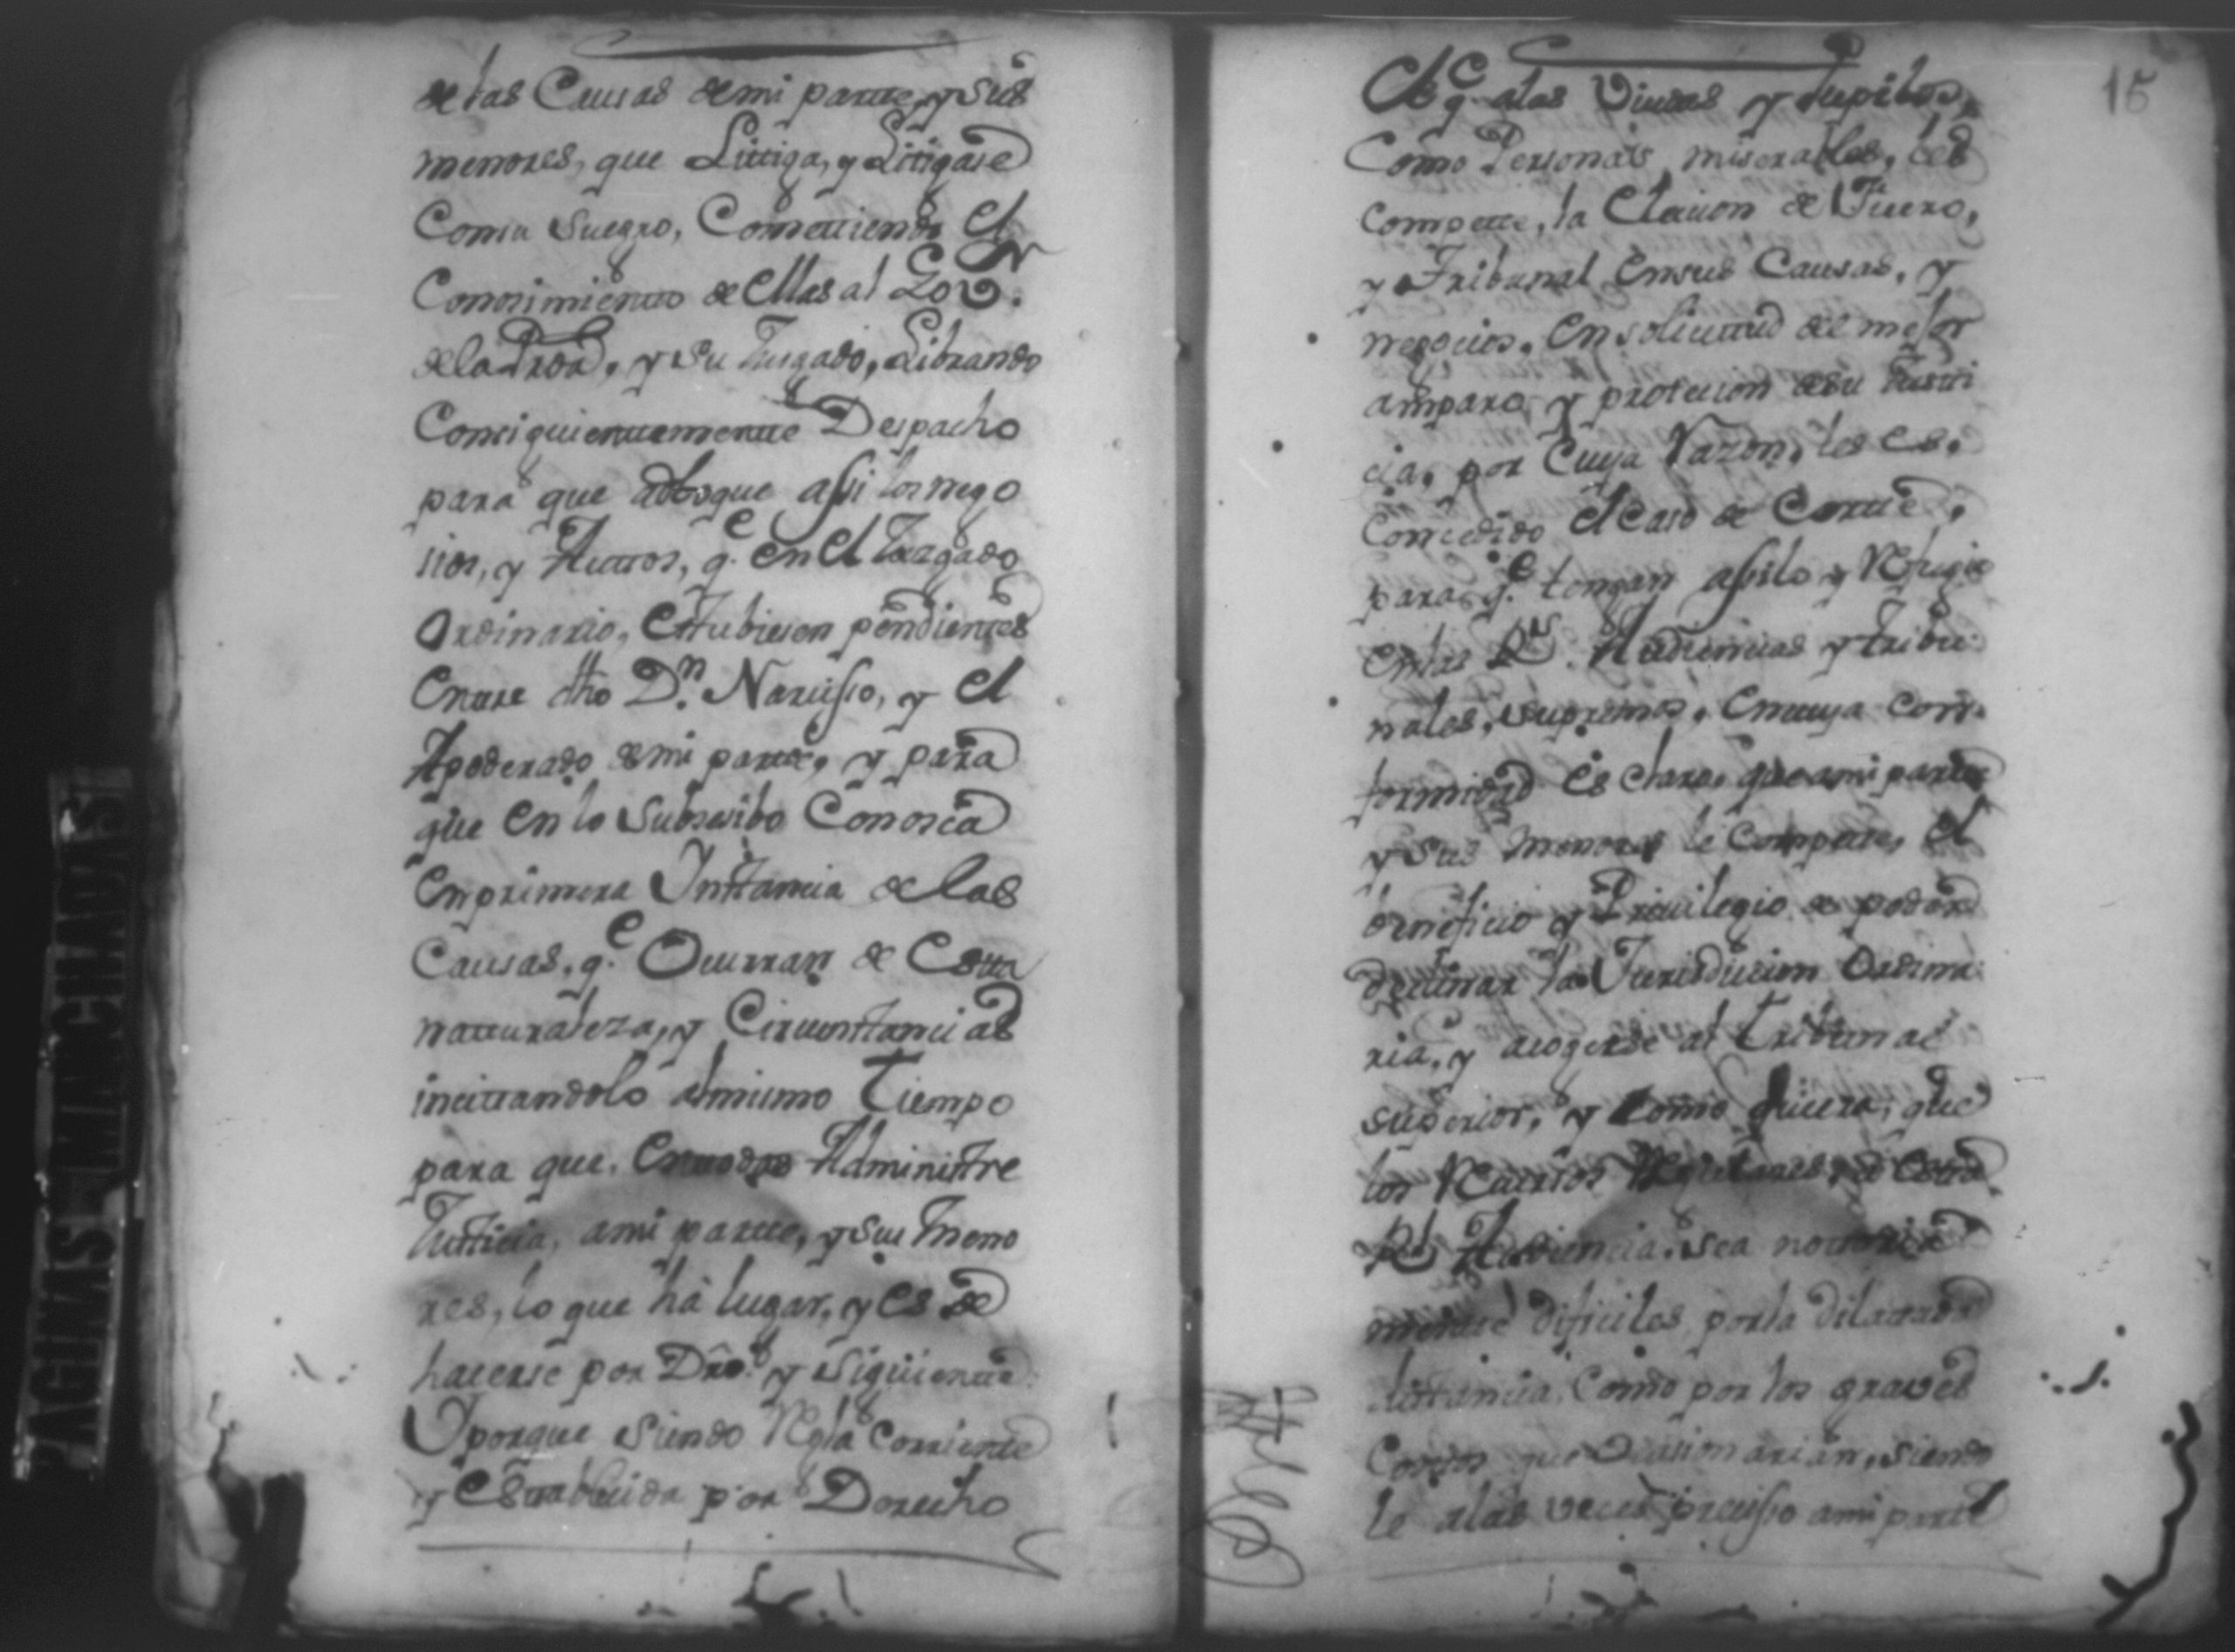 de las Causas de mi parte, y sus
menores, que Littiga, y Litigare
Con su Suegro, Comettiendo el
Conosimientto de ellas al Gov.or
de la Prova, y su Jusgado, Librando
Consiguienttementte Despacho
para que abboque assi los nego
sios, y Auttos, q.e en el Juzgado
Ordinario, esttubiesen pendienttes
Entre dho D.n Narcisso, y el
Apoderado de mi partte, y para
que en lo Subsesibo Conosca
En primera Instancia de las
Causas, q.e Ocurran de Estta
natturaleza, y Circunstancias
incittandolo al mismo Tiempo
para que, en todo Administre
Justicia, a mi partte, y sus Meno
res, lo que há lugar, y es de
hacerse por Dro. y siguientte
Y porque siendo Regla Corrientte
y Establecida por Derecho
15
El q.e a las Viudas y Pupilos,
Como Personas miserables, les
Compette, la Eleccion de Fuero,
y Tribunal en sus Causas, y
negocios, en solicittud de mejor
amparo, y proteccion de su Justi
cia, por Cuya Razon, les es,
Concedido el Caso de Cortte,
para q.e tengan assilo y Refugio
en las R.s Audiencias y tribu
nales, supremos, en cuya Con
formidad es claro, que a mi partte
y sus menores le Compette, el
beneficio y Privilegio de poder
declinar la Jurisdiccion Ordina
ria, y acogerse al Tribunal
superior, y como quiera, que
los Recursos Regulares a esta
Rl Audiencia, sea nottoria
mente dificiles, por la dilattada
disttancia, Como por los graves
Costtos que Ocasionarian, siendo
le a las veces preciso a mi partte
PAGINAS MANCHADAS